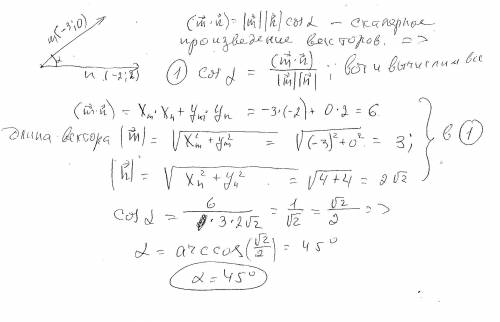 m(-3;0)
α
n (-2;2)
(m⃗·n⃗)=|m⃗||n⃗|cosα – скалярное
произведение векторов. =>
① cosα = (m⃗·n⃗)/|m⃗||n⃗| ; вот и вычислим все
(m⃗·n⃗) = Xm·Xn + Ym·Yn = -3·(-2)+0·2=6
длина вектора |m⃗| = √(Xm²+Ym²) = √((-3)²+0²) = 3;
в ①
|n⃗| = √(Xn²+Yn²) = √(4+4) = 2√2
cosα = 6/(3·2√2) = 1/√2 = √2/2 =>
α = arccos(√2/2) = 45°
α=45°